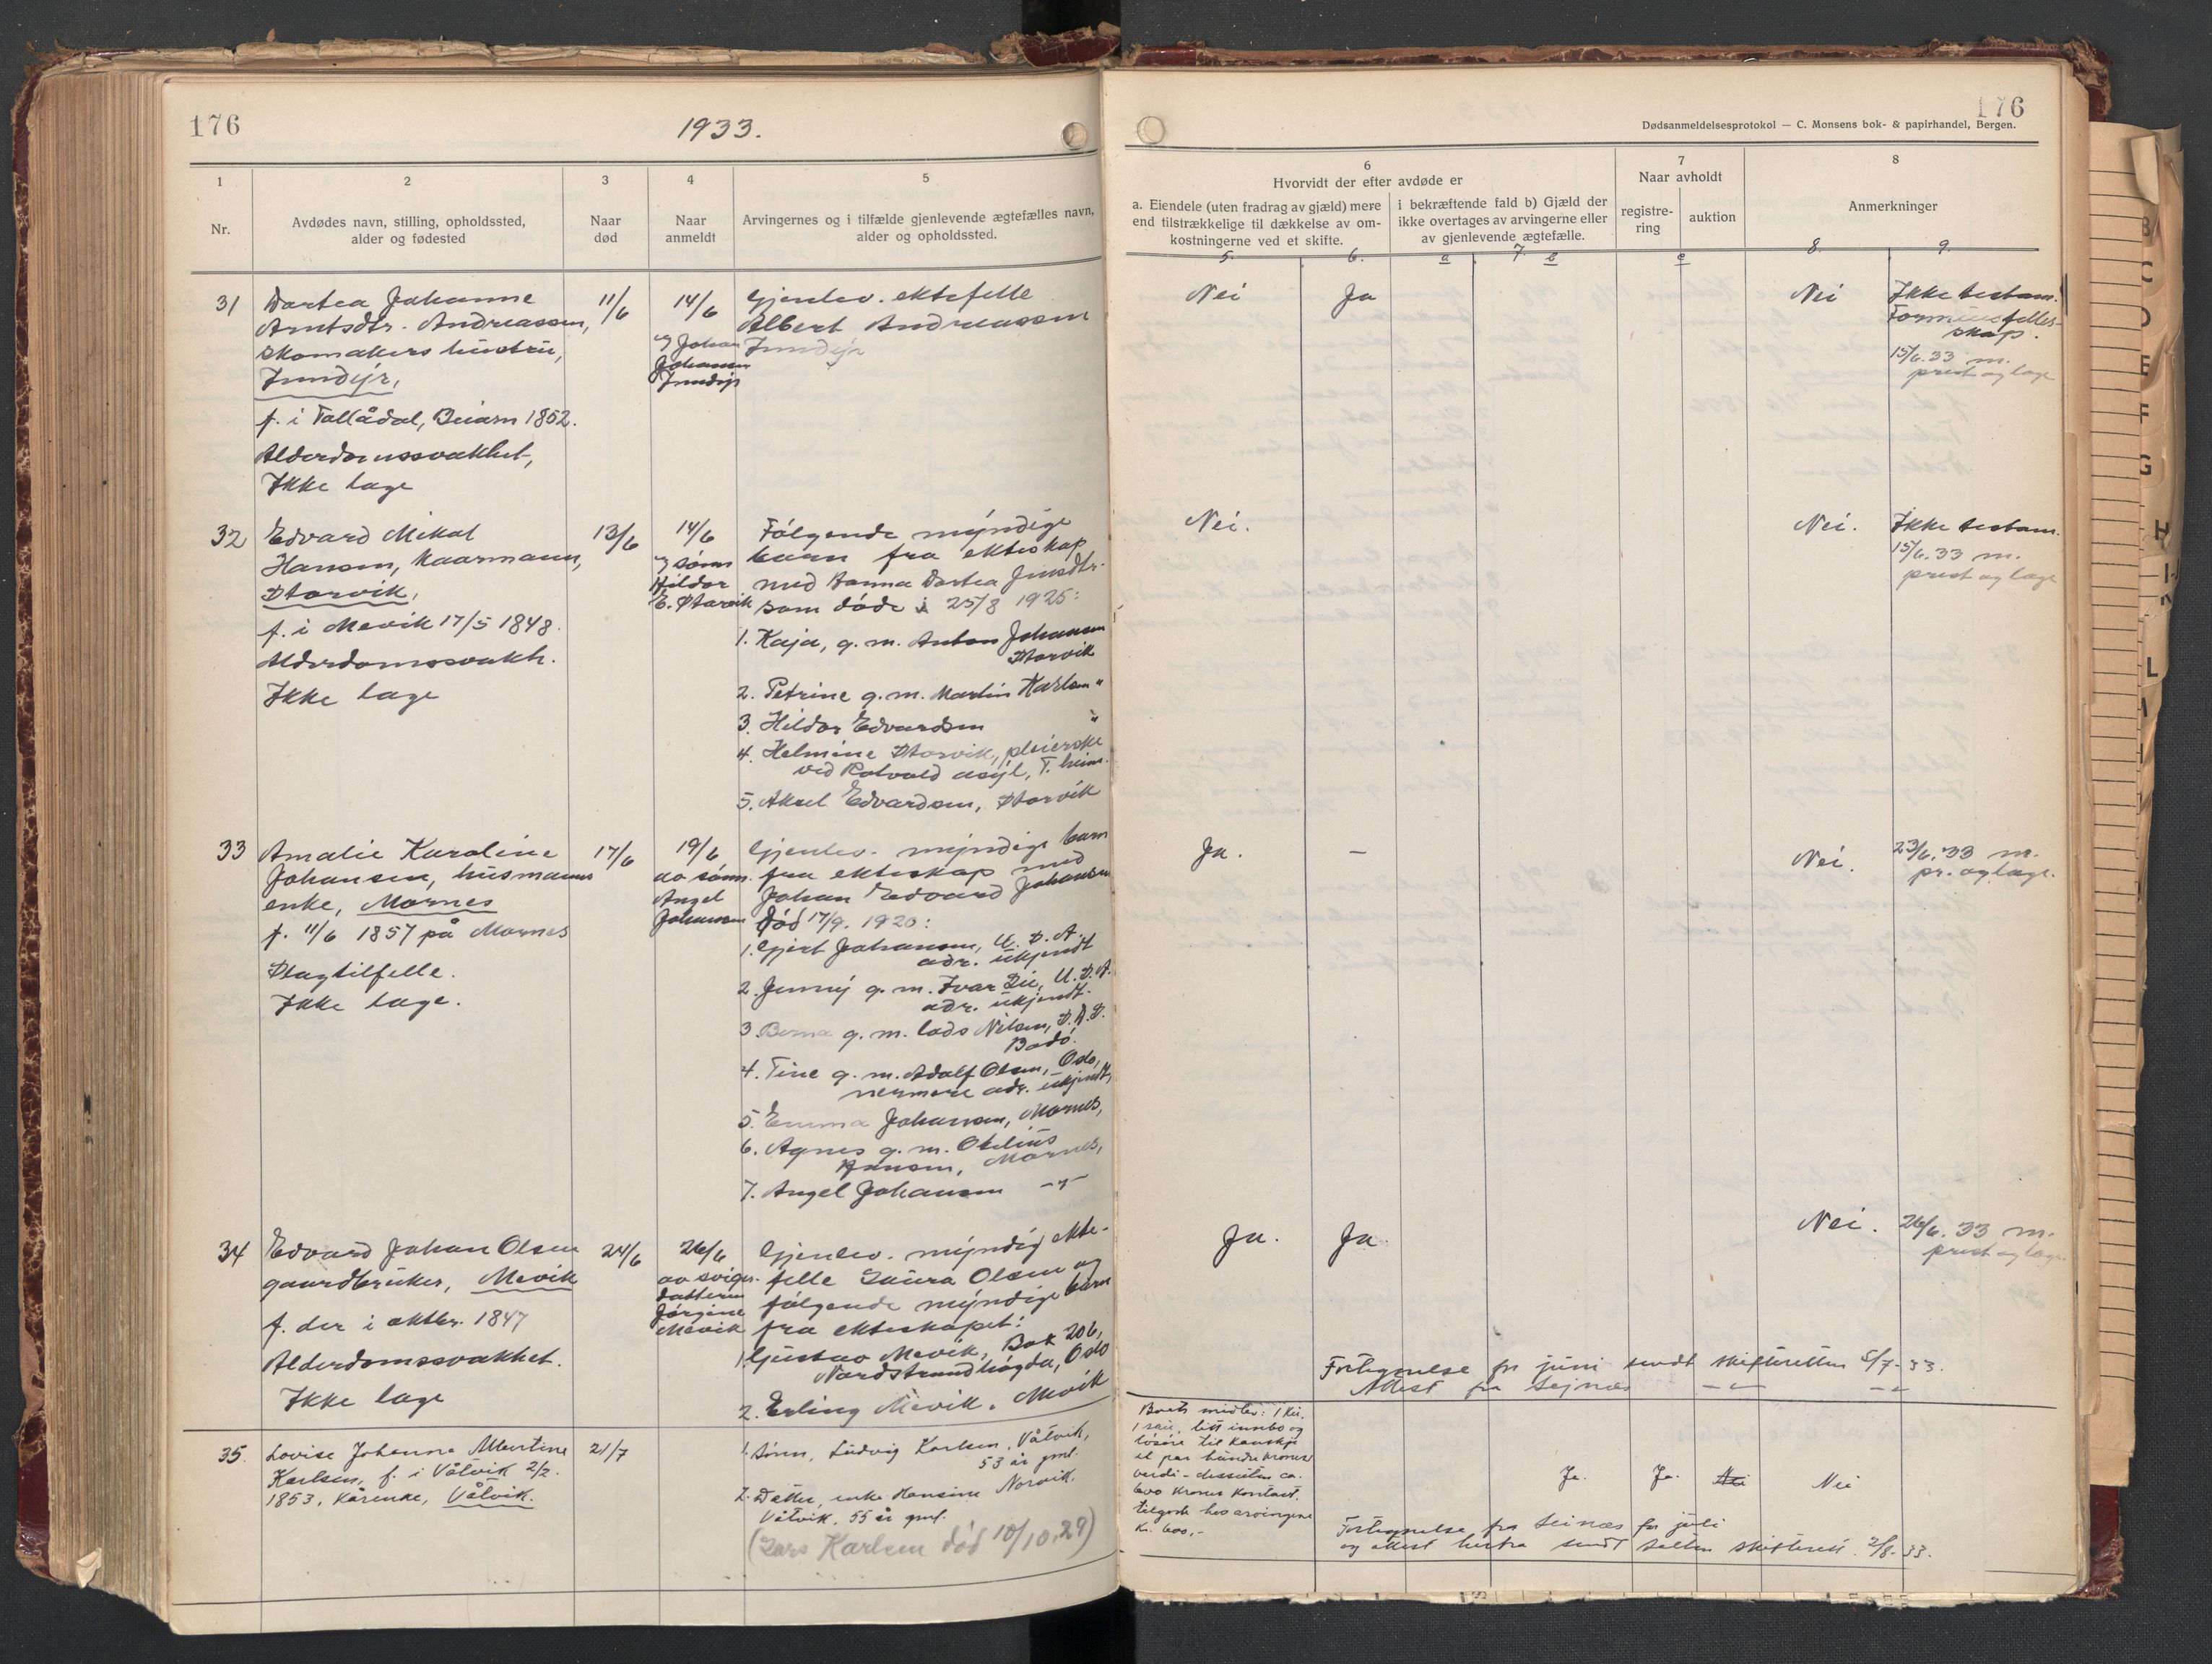 176
1933.
1
2
3
4
5
Nr.
Avdødes navn, stilling, opholdssted,
alder og fødested
Naar
død
Naar
anmeldt
Arvingernes og i tilfælde gjenlevende ægtefælles navn,
alder og opholdssted.
31
Dortea Johanne
Arntsdtr. Andreassen,
skomakers hustru,
Inndyr,
f. i Tollådal, Beiarn 1852.
Alderdomssvakhet,
Ikke læge
11/6
14/6
Johan
Johansen
Inndyr
Gjenlev. ektefelle
Albert Andreassen
Inndyr
32
Edvard Mikal
Hansen, kaarmann,
Storvik,
f. i Mevik 17/5 1848.
Alderdomssvakh.
Ikke læge
13/6
14/6
sønn
Hildor
E. Storvik
Følgende myndige
barn fra ekteskap
med Hanna Dortea Jensdtr.
som døde i 25/8 1925:
1. Kaja, g. m. Anton Johansen
Storvik
2. Petrine g. m. Martin Karlsen "
3. Hildor Edvardsen "
4. Helmine Storvik, pleierske
ved Rotvold asyl, T. heim.
5. Aksel Edvardsen, Storvik
33
Amalie Karoline
Johansen, husmanns
enke, Mornes
f. 11/6 1857 på Mornes
Slagtilfelle.
Ikke læge.
17/6
19/6
av sønn
Angel
Johansen
Gjenlev. myndige barn
fra ekteskap med
Johan Edvard Johansen
død 17/9. 1920:
1. Gjert Johansen, U. S. A.
adr. ukjendt
2. Jenny g. m. Ivar Lie, U. S. A.
adr. ukjendt.
3. Berna g. m. lods Nilsen, D. D. S.
Bodø.
4. Tine g. m. Adolf Olsen, Oslo,
nermere adr. ukjendt,
5. Emma Johansen, Mornes,
6. Agnes g. m. Otelius
Hansen, Mornes,
7. Angel Johansen —"—
34
Edvard Johan Olsen
gaardbruker, Mevik
f. der i oktbr. 1847
Alderdomssvakhet.
Ikke læge
24/6
26/6
av sviger-
datteren
Jørgine
Mevik
Gjenlev. myndig ekte-
felle Laura Olsen og
følgende myndige barn
fra ekteskapet:
1. Gustav Mevik, Box 206,
Nordstrandhøgda, Oslo
2. Erling Mevik, Mevik
35.
Lovise Johanna Albertine
Karlsen, f. i Våtvik 2/2.
1853, kårenke, Våtvik.
21/7
1. Sønn, Ludvig Karlsen, Våtvik,
53 år gml.
2. Datter, enke Hansine Norvik,
Våtvik, 55 år gml.
(Lars Karlsen død 10/10.29)
176
Dødsanmeldelsesprotokol — C. Monsens bok- & papirhandel, Bergen.
6
Hvorvidt der efter avdøde er
a. Eiendele (uten fradrag av gjæld) mere
end tilstrækkelige til dækkelse av om-
kostningerne ved et skifte.
i bekræftende fald b) Gjæld der
ikke overtages av arvingerne eller
av gjenlevende ægtefælle.
7
Naar avholdt
registre-
ring
auktion
8
Anmerkninger
5. 6. a 7. b c 8. 9.
Nei Ja Nei Ikke testam.
Formuefelles-
skap.
15/6.33 m.
prest og læge
Nei. Nei. Ikke testam.
15/6.33 m.
prest og læge
Ja. — Nei. 23/6.33 m.
pr. og læge.
Ja. Ja. Nei. 26/6.33 m.
prest og læge
Fortegnelse for juni sendt skifteretten 5/7-33.
Attest fra —"— —"—
Boets midler: 1 ku,
1 sau, litt innbo og
løsøre til kanskje
et par hundre kroner
verdi - dessuten ca.
600 kroner kontant.
tilgode hos arvingene
Kr. 600,-
Ja. Ja. Nei Nei
Fortegnelse fra for juli
og attest herfra sendt Salten skifterett. 2/8-33.
B
C
D
E
F
G
H
L